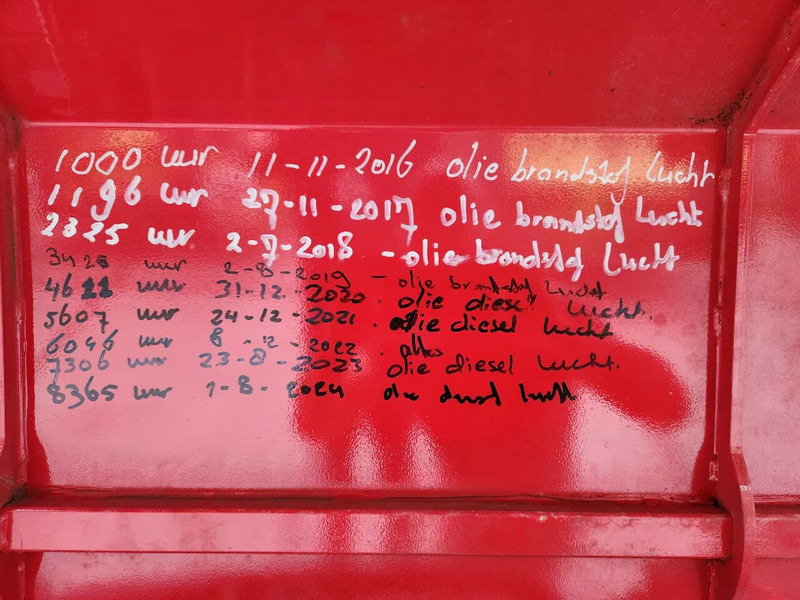 1000 uur 11-11-2016 olie brandstof lucht
1196 uur 27-11-2017 olie brandstof lucht
2325 uur 2-7-2018 - olie brandstof lucht
3425 uur 2-8-2019 - olie brandstof lucht
4622 uur 31-12-2020 . olie diesel lucht.
5607 uur 24-12-2021 . olie diesel lucht
6046 uur 8-12-2022 . alles
7306 uur 23-8-2023 olie diesel lucht.
8365 uur 1-8-2024 olie diesel lucht